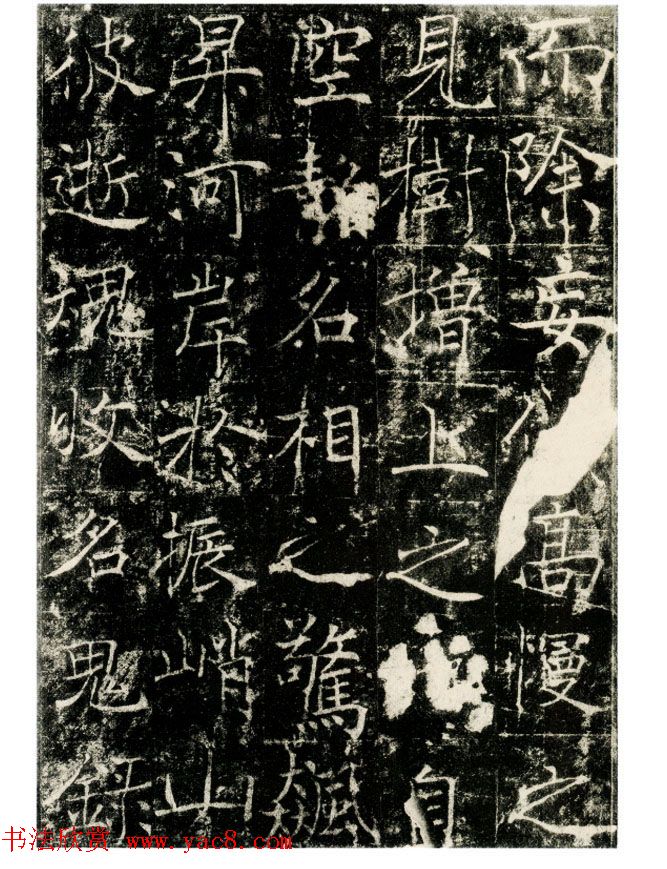 而除妄高慢之
見樹增上之自
空名相之驚飈
昇河岸於振峭山
彼逝魂收名鬼錄
书法欣赏 www.yac8.com